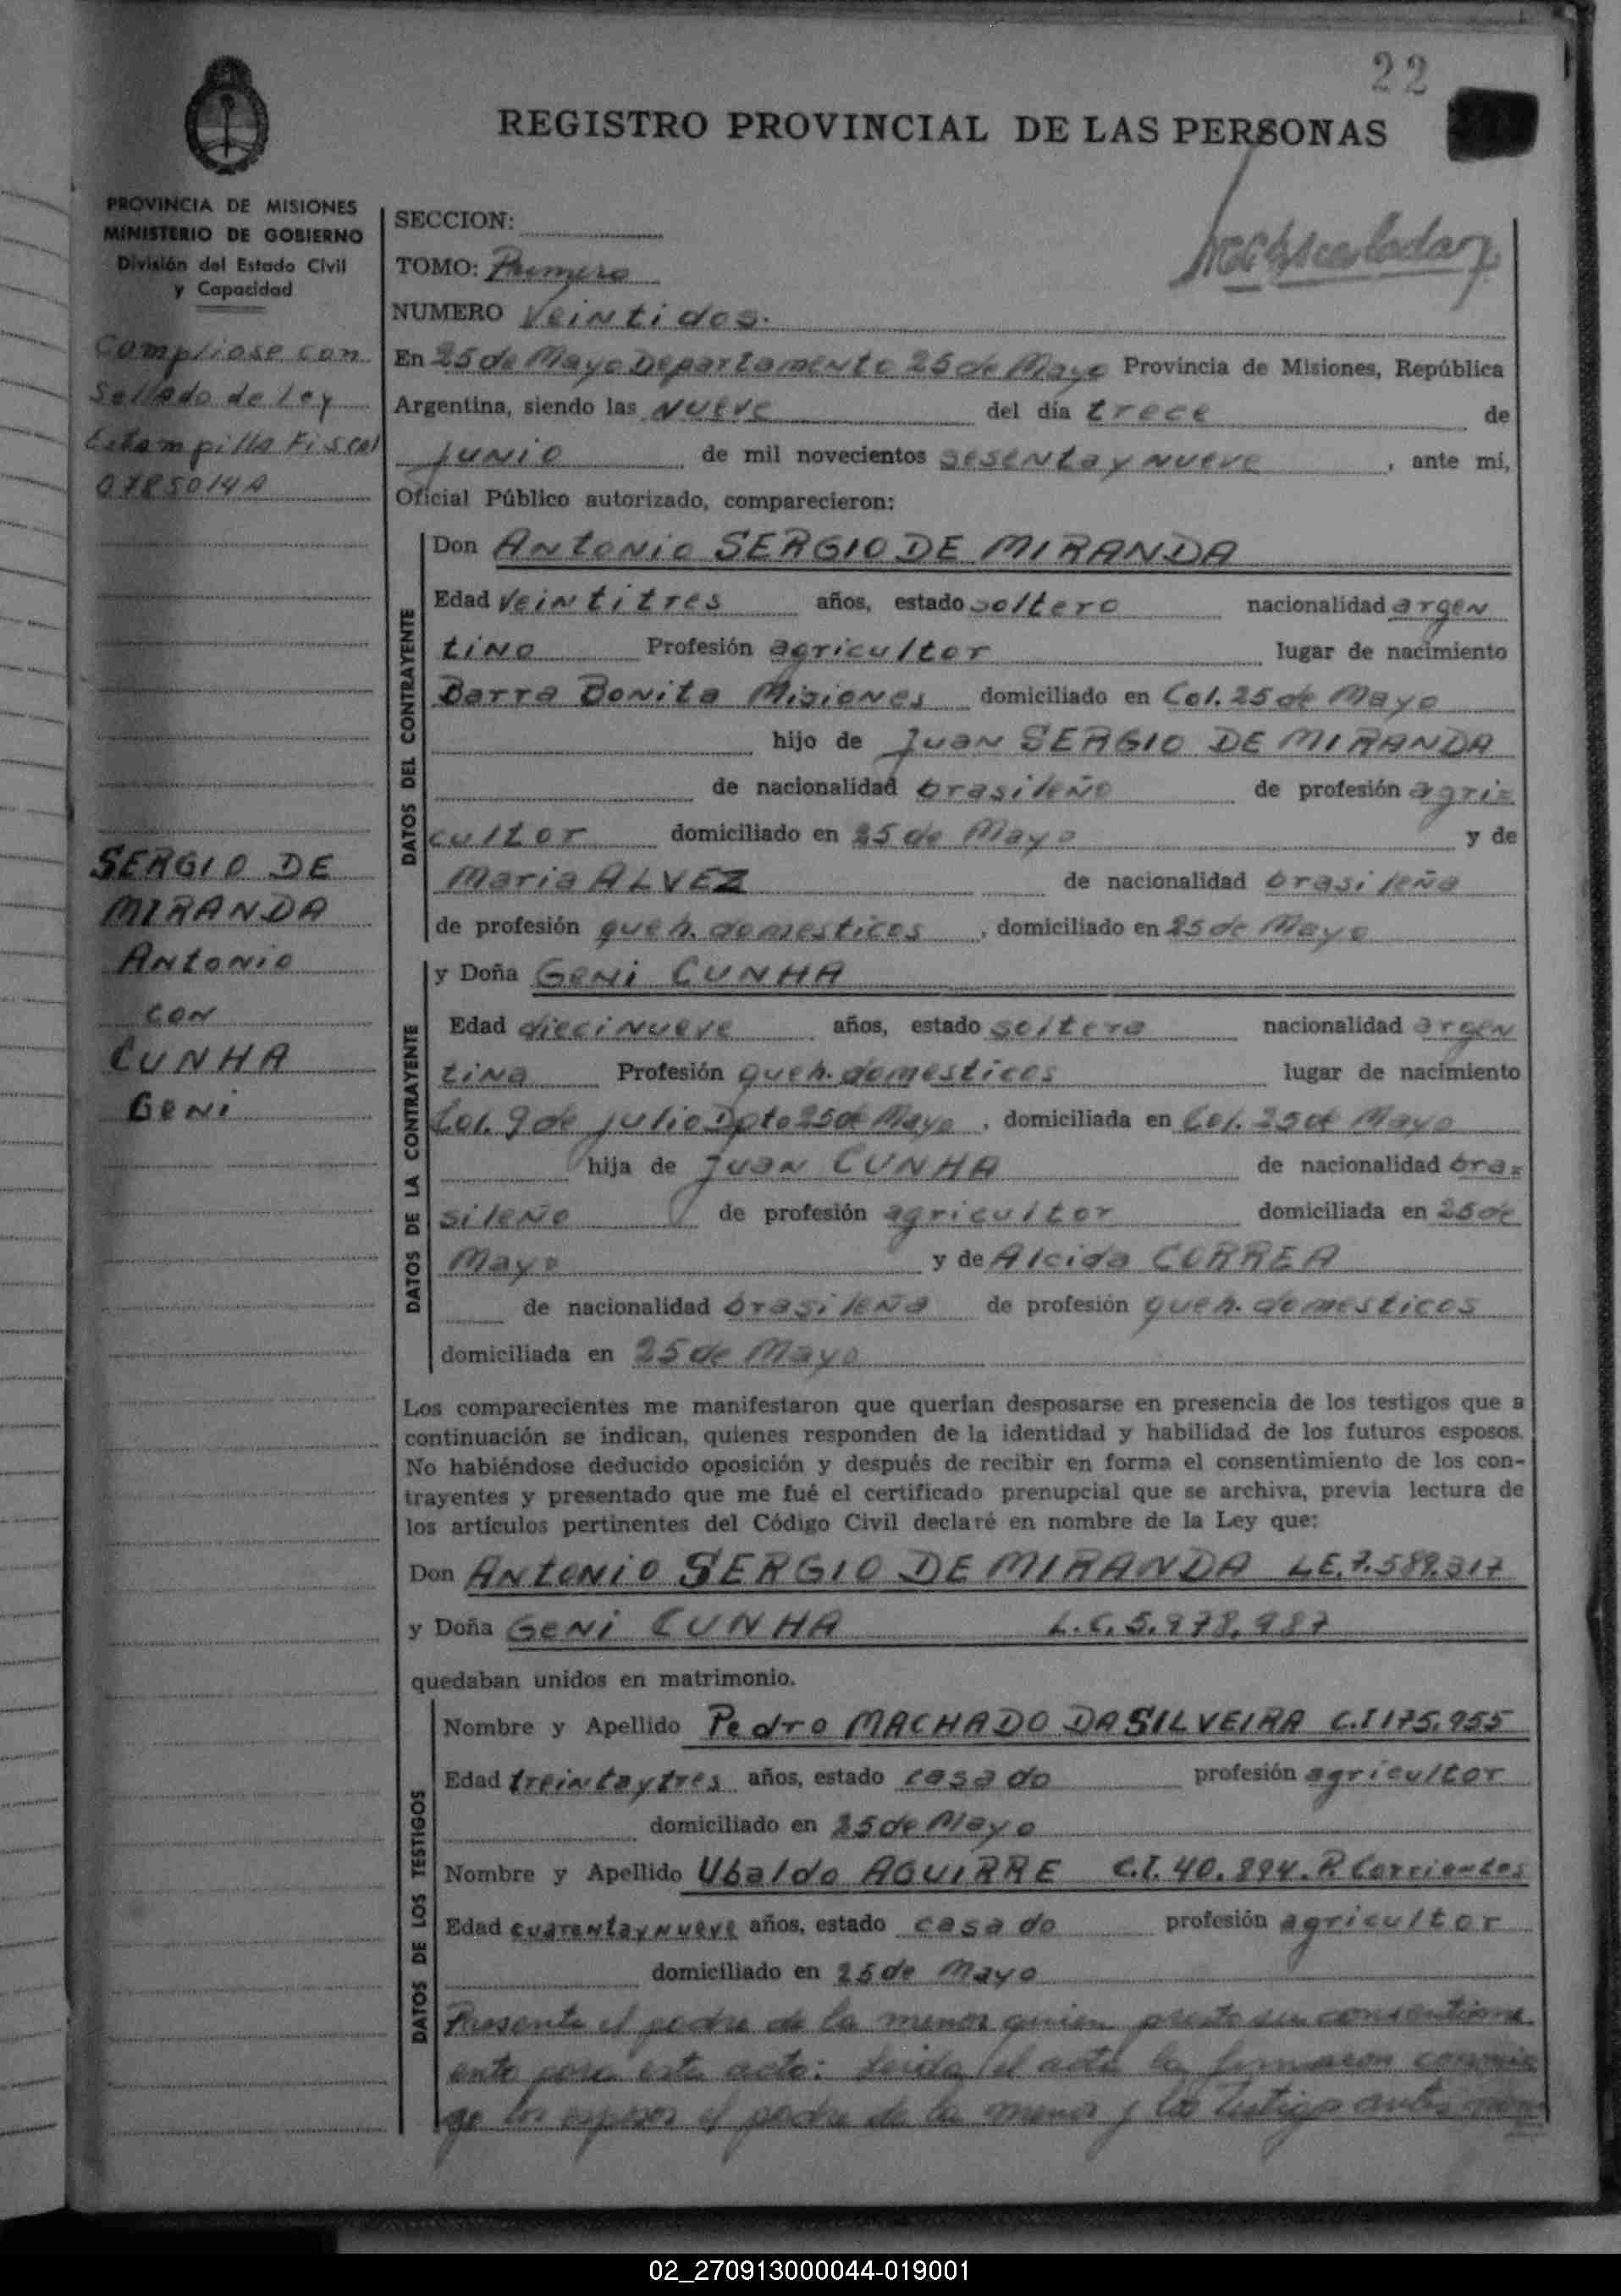 22
REGISTRO PROVINCIAL DE LAS PERSONAS
PROVINCIA DE MISIONES
MINISTERIO DE GOBIERNO
División del Estado Civil
y Capacidad
Compliose con
Sellado de Ley
Estampilla Fiscal
0785014A
SERGIO DE
MIRANDA
Antonio
con
CUNHA
Geni
SECCION:
TOMO: Primero
NUMERO Veintidos.
En 25 de Mayo Departamento 25 de Mayo Provincia de Misiones, República
Argentina, siendo las nueve del día trece de
junio de mil novecientos sesenta y nueve, ante mí,
Oficial Público autorizado, comparecieron:
DATOS DEL CONTRAYENTE
Don Antonio SERGIO DE MIRANDA
Edad veintitres años, estado soltero nacionalidad argen
tino Profesión agricultor lugar de nacimiento
Barra Bonita Misiones domiciliado en Col. 25 de Mayo
hijo de Juan SERGIO DE MIRANDA
de nacionalidad brasileño de profesión agri=
cultor domiciliado en 25 de Mayo y de
Maria ALVEZ de nacionalidad brasileña
de profesión queh. domesticos, domiciliado en 25 de Mayo
DATOS DE LA CONTRAYENTE
y Doña Geni CUNHA
Edad diecinueve años, estado soltera nacionalidad argen
tina Profesión queh. domesticos lugar de nacimiento
Col. 9 de julio Dpto 25 de Mayo, domiciliada en Col. 25 de Mayo
hija de Juan CUNHA de nacionalidad bra=
sileño de profesión agricultor domiciliada en 25 de
Mayo y de Alcida CORREA
de nacionalidad brasileña de profesión queh. domesticos
domiciliada en 25 de Mayo
Los comparecientes me manifestaron que querían desposarse en presencia de los testigos que a
continuación se indican, quienes responden de la identidad y habilidad de los futuros esposos.
No habiéndose deducido oposición y después de recibir en forma el consentimiento de los con-
trayentes y presentado que me fué el certificado prenupcial que se archiva, previa lectura de
los artículos pertinentes del Código Civil declaré en nombre de la Ley que:
Don Antonio SERGIO DE MIRANDA L.E. 7.589.317
y Doña Geni CUNHA L.C. 5.978.987
quedaban unidos en matrimonio.
DATOS DE LOS TESTIGOS
Nombre y Apellido Pedro MACHADO DA SILVEIRA C.I 175.955
Edad treinta y tres años, estado casado profesión agricultor
domiciliado en 25 de Mayo
Nombre y Apellido Ubaldo AGUIRRE C.I. 40.894. P. Corrientes
Edad cuarenta y nueve años, estado casado profesión agricultor
domiciliado en 25 de Mayo
Presente el padre de la menor quien presta su consentimi
ento para este acto: Leida el acta la firmaron conmi
go los esposos el padre de la menor y los testigos antes
02_270913000044-019001